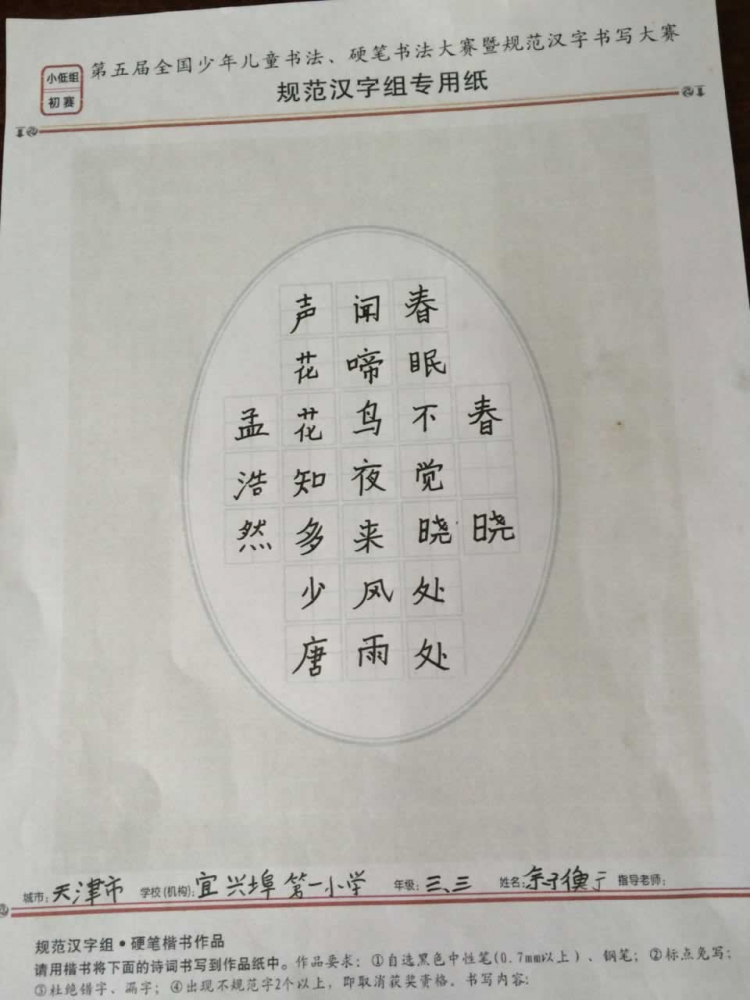 小低组
初赛
第五届全国少年儿童书法、硬笔书法大赛暨规范汉字书写大赛
规范汉字组专用纸
春晓
春眠不觉晓处处
闻啼鸟夜来风雨
声花花知多少唐
孟浩然
城市：天津市 学校(机构)：宜兴埠第一小学 年级：三、三 姓名： 指导老师：
规范汉字组•硬笔楷书作品
请用楷书将下面的诗词书写到作品纸中。作品要求：①自选黑色中性笔(0.7mm以上)、钢笔；②标点免写；
③杜绝错字、漏字；④出现不规范字2个以上，即取消获奖资格。书写内容：